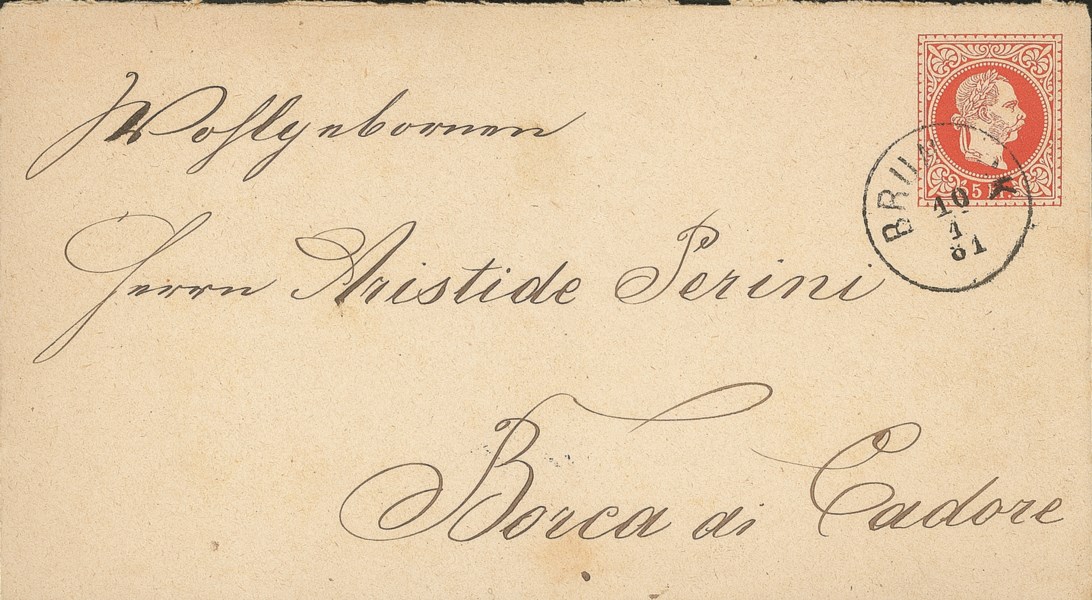 Wohlgebornen
Herrn Aristide Perini
Borca di Cadore
5
BRUN K
10
1
81